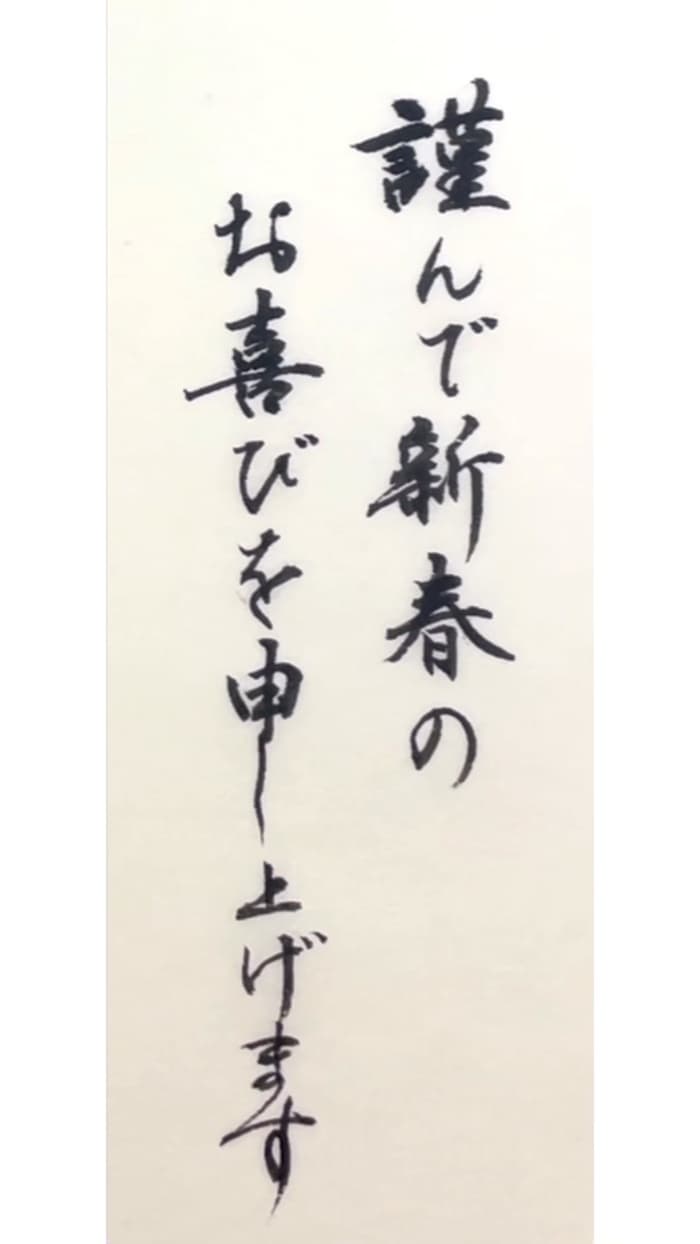 謹んで新春の
お喜びを申し上げます